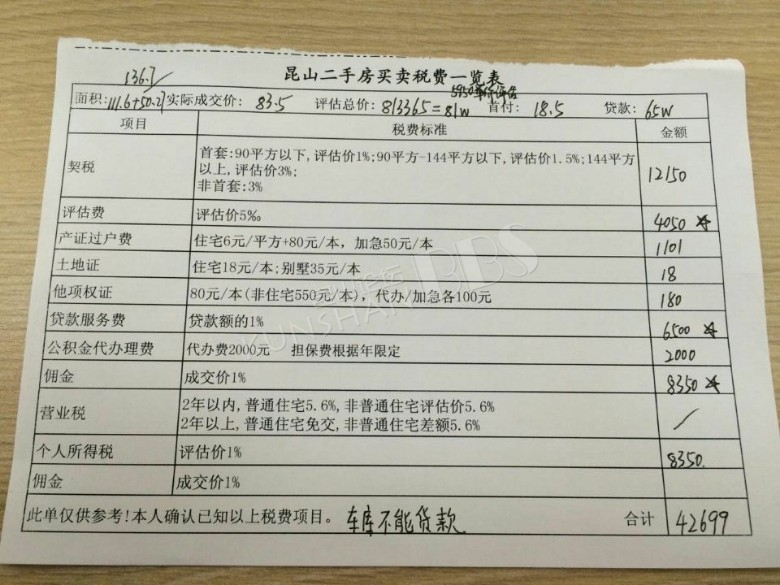 136.7
昆山二手房买卖税费一览表
5950单价评估
面积:111.6+50.27 实际成交价: 83.5 评估总价: 813365=81W 首付: 18.5 贷款: 65W
项目 税费标准 金额
契税 首套:90平方以下,评估价1%;90平方-144平方以下,评估价1.5%;144平方以上,评估价3%;
非首套:3% 12150
评估费 评估价5‰ 4050
产证过户费 住宅6元/平方+80元/本, 加急50元/本 1101
土地证 住宅18元/本;别墅35元/本 18
他项权证 80元/本(非住宅550元/本), 代办/加急各100元 180
贷款服务费 贷款额的1% 6500
公积金代办理费 代办费2000元 担保费根据年限定 2000
佣金 成交价1% 8350
营业税 2年以内,普通住宅5.6%,非普通住宅评估价5.6%
2年以上,普通住宅免交,非普通住宅差额5.6% /
个人所得税 评估价1% 8350.
佣金 成交价1%
此单仅供参考!本人确认已知以上税费项目。 车库不能贷款 合计 42699
KUNSHAN BBS